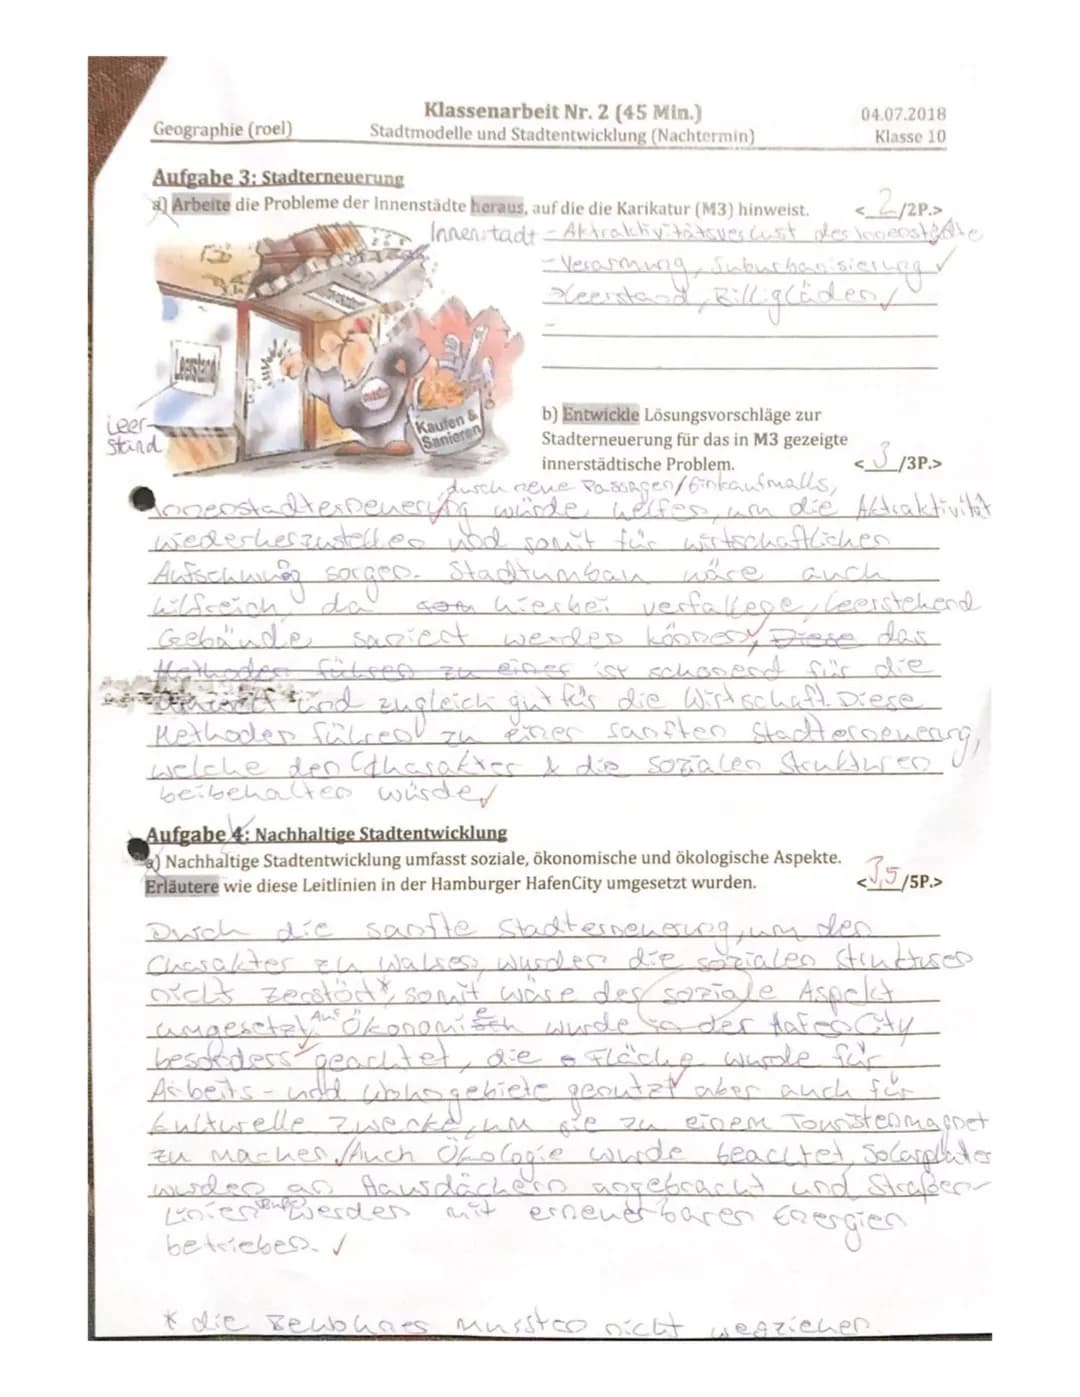 Klassenarbeit Nr. 2 (45 Min.)
04.07.2018
Geographie (roel)
Stadtmodelle und Stadtentwicklung (Nachtermin)
Klasse 10
Aufgabe 3: Stadterneuerung
a) Arbeite die Probleme der Innenstädte heraus, auf die die Karikatur (M3) hinweist.
< 2 /2P.>
Innenstadt - Aktraktivitätsverlust des Innenstädte
- Verarmung, Suburbanisierung ✓
Leerstand, Billigläden ✓
-
Leerstand
Leer-
stand
Kaufen &
Sanieren
b) Entwickle Lösungsvorschläge zur
Stadterneuerung für das in M3 gezeigte
innerstädtische Problem.
< 3 /3P.>
durch neue Passagen/Einkaufmalls,
Innenstadterneuerung würde helfen, um die Aktraktivität
wiederherzustellen und somit für wirtschaftlichen
Aufschwung sorgen. Stadtumbau wäre auch
hilfreich, da hierbei verfallene, leerstehend
Gebäude saniert werden können, ✓ Diese das
Methoden führen zu einer ist schonend für die
Umwelt und zugleich gut für die Wirtschaft. Diese
Methoden führen zu einer sanften Stadterneuerung,
welche den Charakter & die sozialen Strukturen
beibehalten würde ✓
Aufgabe 4: Nachhaltige Stadtentwicklung
a) Nachhaltige Stadtentwicklung umfasst soziale, ökonomische und ökologische Aspekte.
Erläutere wie diese Leitlinien in der Hamburger HafenCity umgesetzt wurden.
< 3,5 /5P.>
Durch die sanfte Stadterneuerung, um den
Charakter zu wahren, wurden die sozialen Strukturen
nicht zerstört*, somit wäre der soziale Aspekt
umgesetzt. Auf Ökonomie wurde in der HafenCity
besonders geachtet, die Fläche wurde für
Arbeits- und Wohngebiete genutzt ✓ aber auch für
kulturelle Zwecke, um sie zu einem Touristenmagnet
zu machen. ✓ Auch Ökologie wurde beachtet, Solarplatten
wurden an Hausdächern angebracht und Straßen-
Linien werden mit erneuerbaren Energien
betrieben. ✓
* die Bewohner mussten nicht wegziehen.